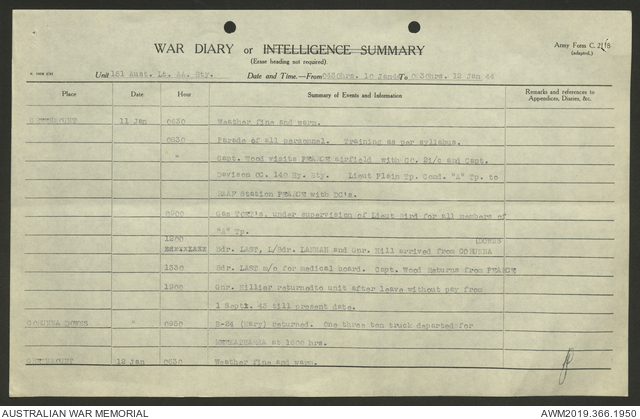 WAR DIARY or INTELLIGENCE SUMMARY
(Erase heading not required).
Army Form C. 2118
(adapted.)
Unit 151 Aust. Lt. AA. Bty. Date and Time.—From 0630hrs. 10 Jan To 0630hrs. 12 Jan 44
Place Date Hour Summary of Events and Information Remarks and references to
Appendices, Diaries, &c.
11 Jan 0630 Weather fine and warm.
0830 Parade of all personnel. Training as per syllabus.
" Capt. Wood visits PEARCE airfield with OC. 2i/c and Capt.
Davison OC. 140 Hy. Bty. Lieut Plain Tp. Comd. "A" Tp. to
RAAF Station PEARCE with DC's.
0900 Gas under supervision of Lieut Bird for all members of
"A" Tp.
1200 (DOWNS
Bdr. LAST, L/Bdr. and Gnr. Hill arrived from CORUNNA
1330 Bdr. LAST m/o for medical board. Capt. Wood Returns from PEARCE
1900 Gnr. Hillier returnedto unit after leave without pay from
1 Sept. 43 till present date.
CORUNNA DOWNS " 0950 B-24 (Mary) returned. One three ton truck departed for
at 1000 hrs.
12 Jan 0630 Weather fine and warm.
AUSTRALIAN WAR MEMORIAL
AWM2019.366.1950